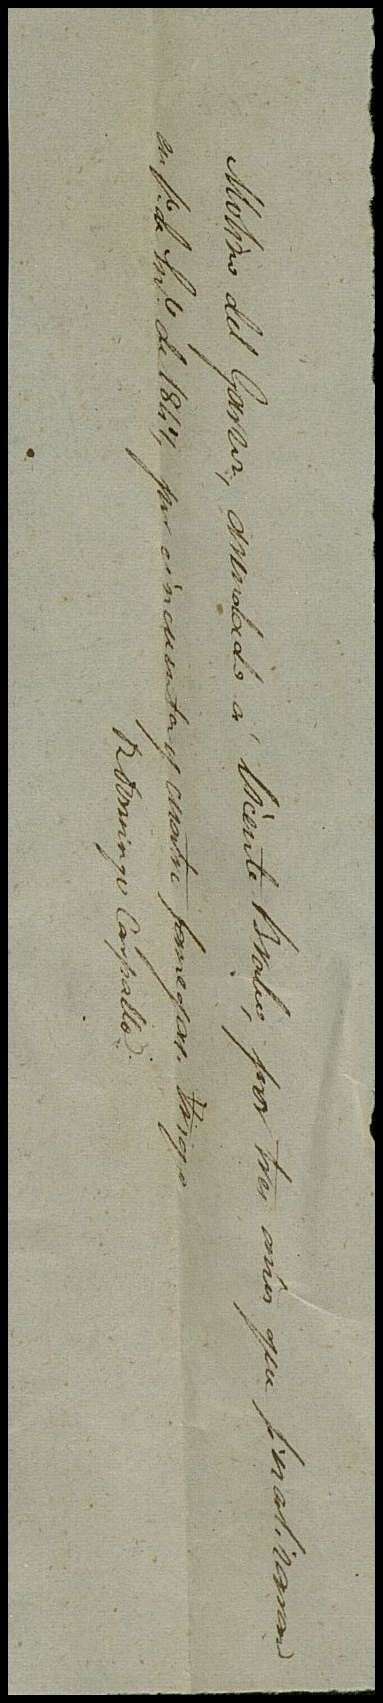 Molino del Garro, arrendado a Vicente Brabo, por tres años que finalizaran
en 1º de En.º de 1844, por cincuenta y cuatro fanegas trigo
Domingo Carballo